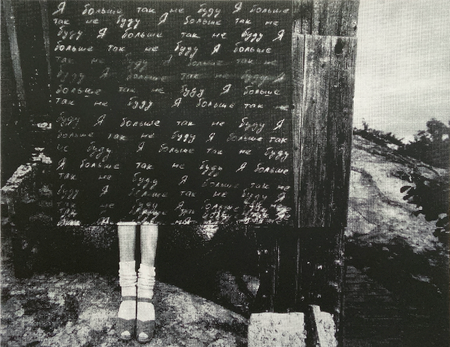 Я больше
так не буду Я больше так не
буду Я больше так не буду Я
больше так не буду Я больше
так не буду Я больше так не
буду Я больше так не буду Я
больше так не буду Я больше
так не буду Я больше так
не буду Я больше так не
буду Я больше так не буду Я
больше так не буду Я больше так
не буду Я больше так не буду
Я больше так не буду Я больше
так не буду Я больше так не
буду Я больше так не
буду Я